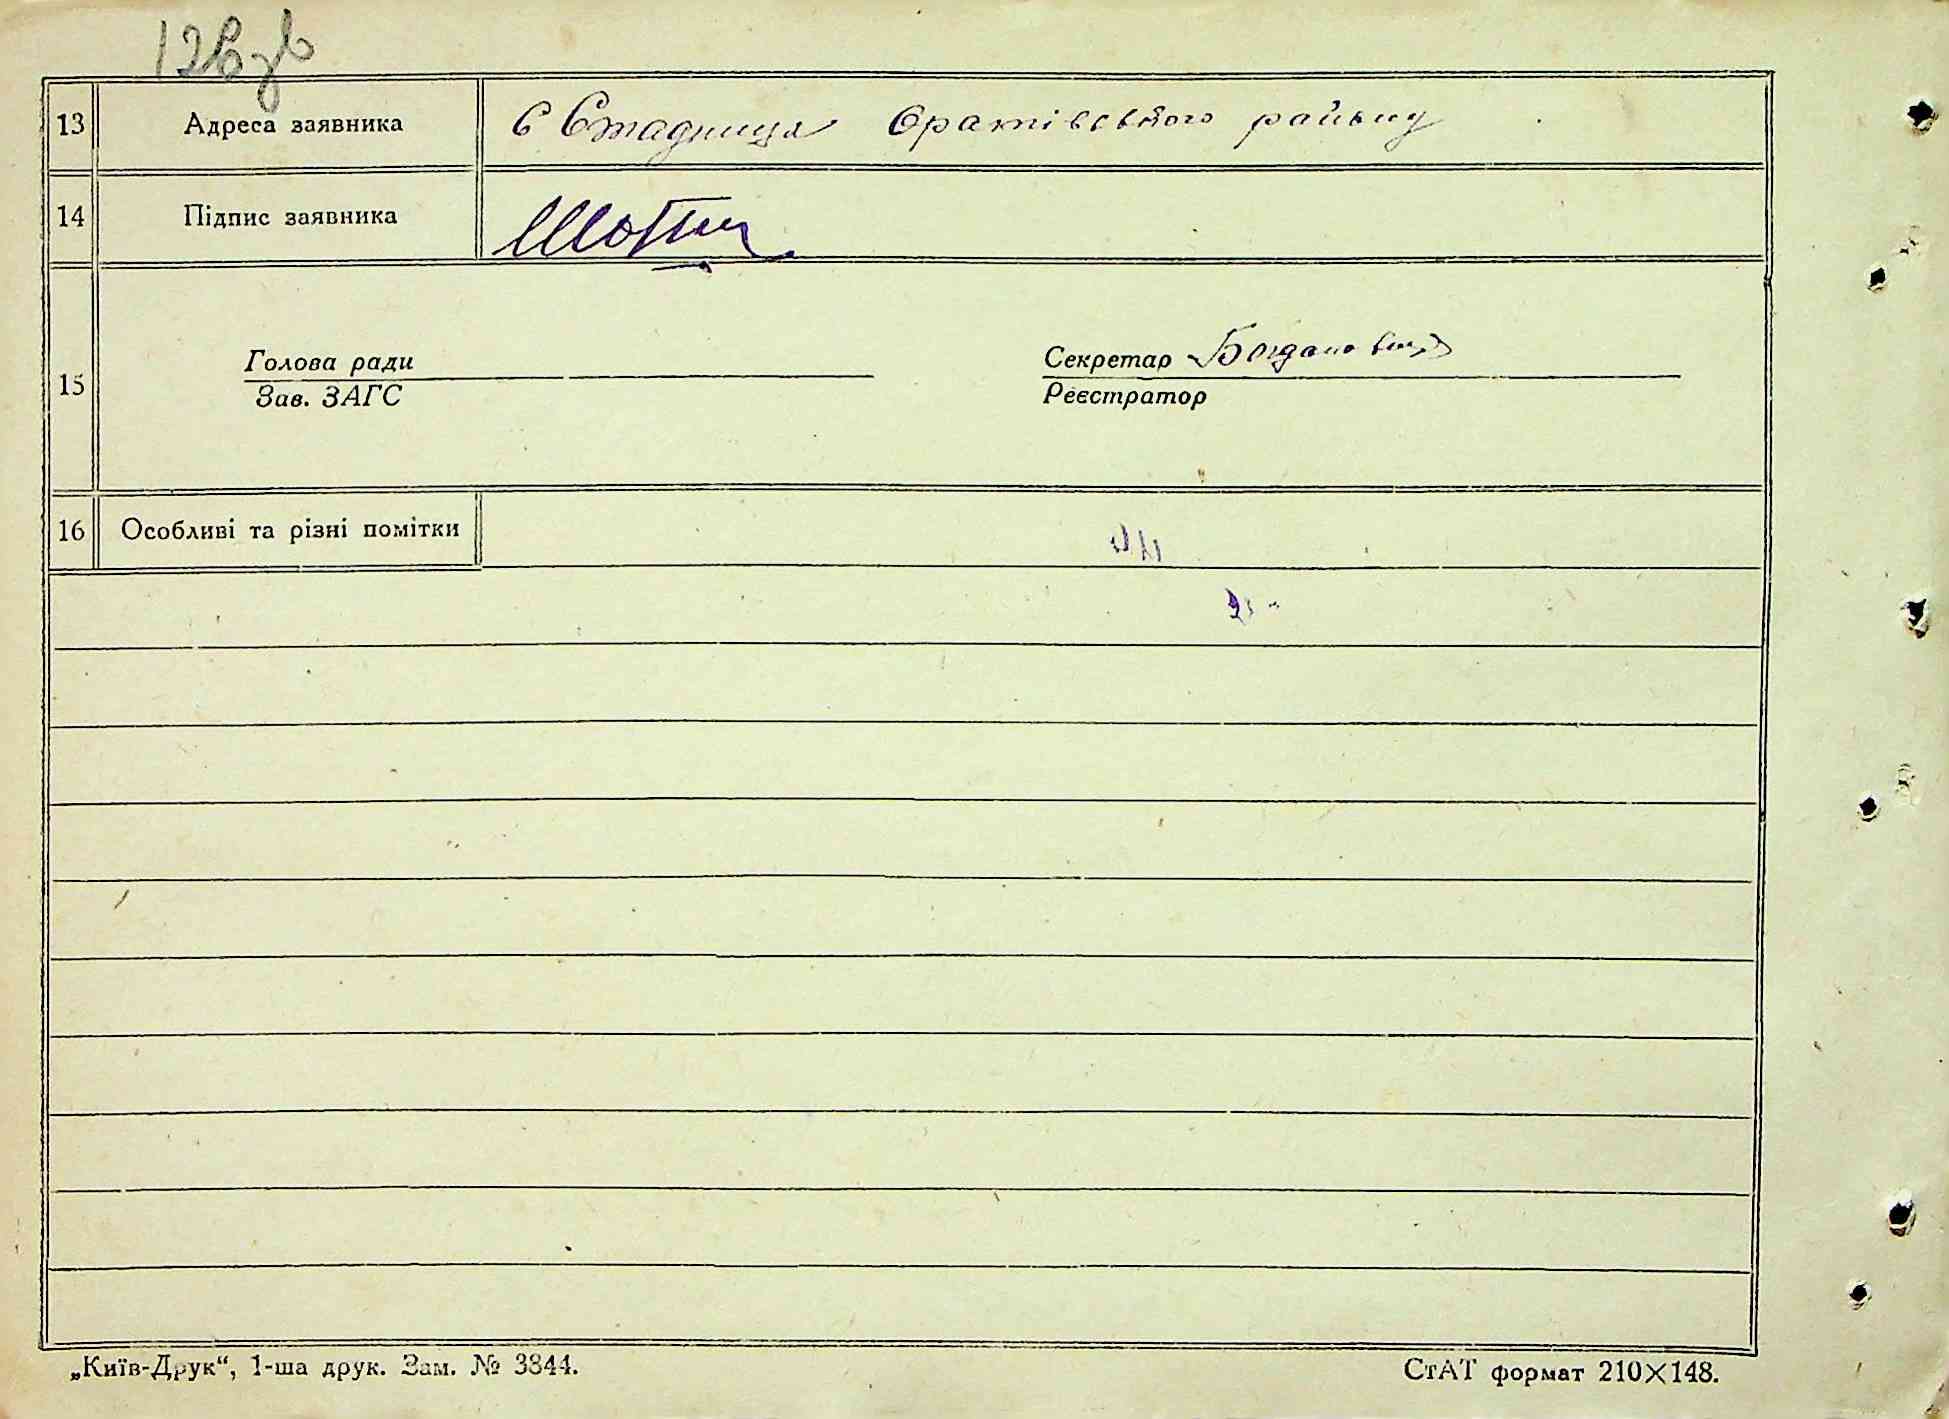 126зв
13 Адреса заявника С Стадниця Оратівського району
14 Підпис заявника
15 Голова ради Секретар Богданович
Зав. ЗАГС Реєстратор
16 Особливі та різні помітки
„Київ-Друк“, 1-ша друк. Зам. № 3344. СтАТ формат 210×148.